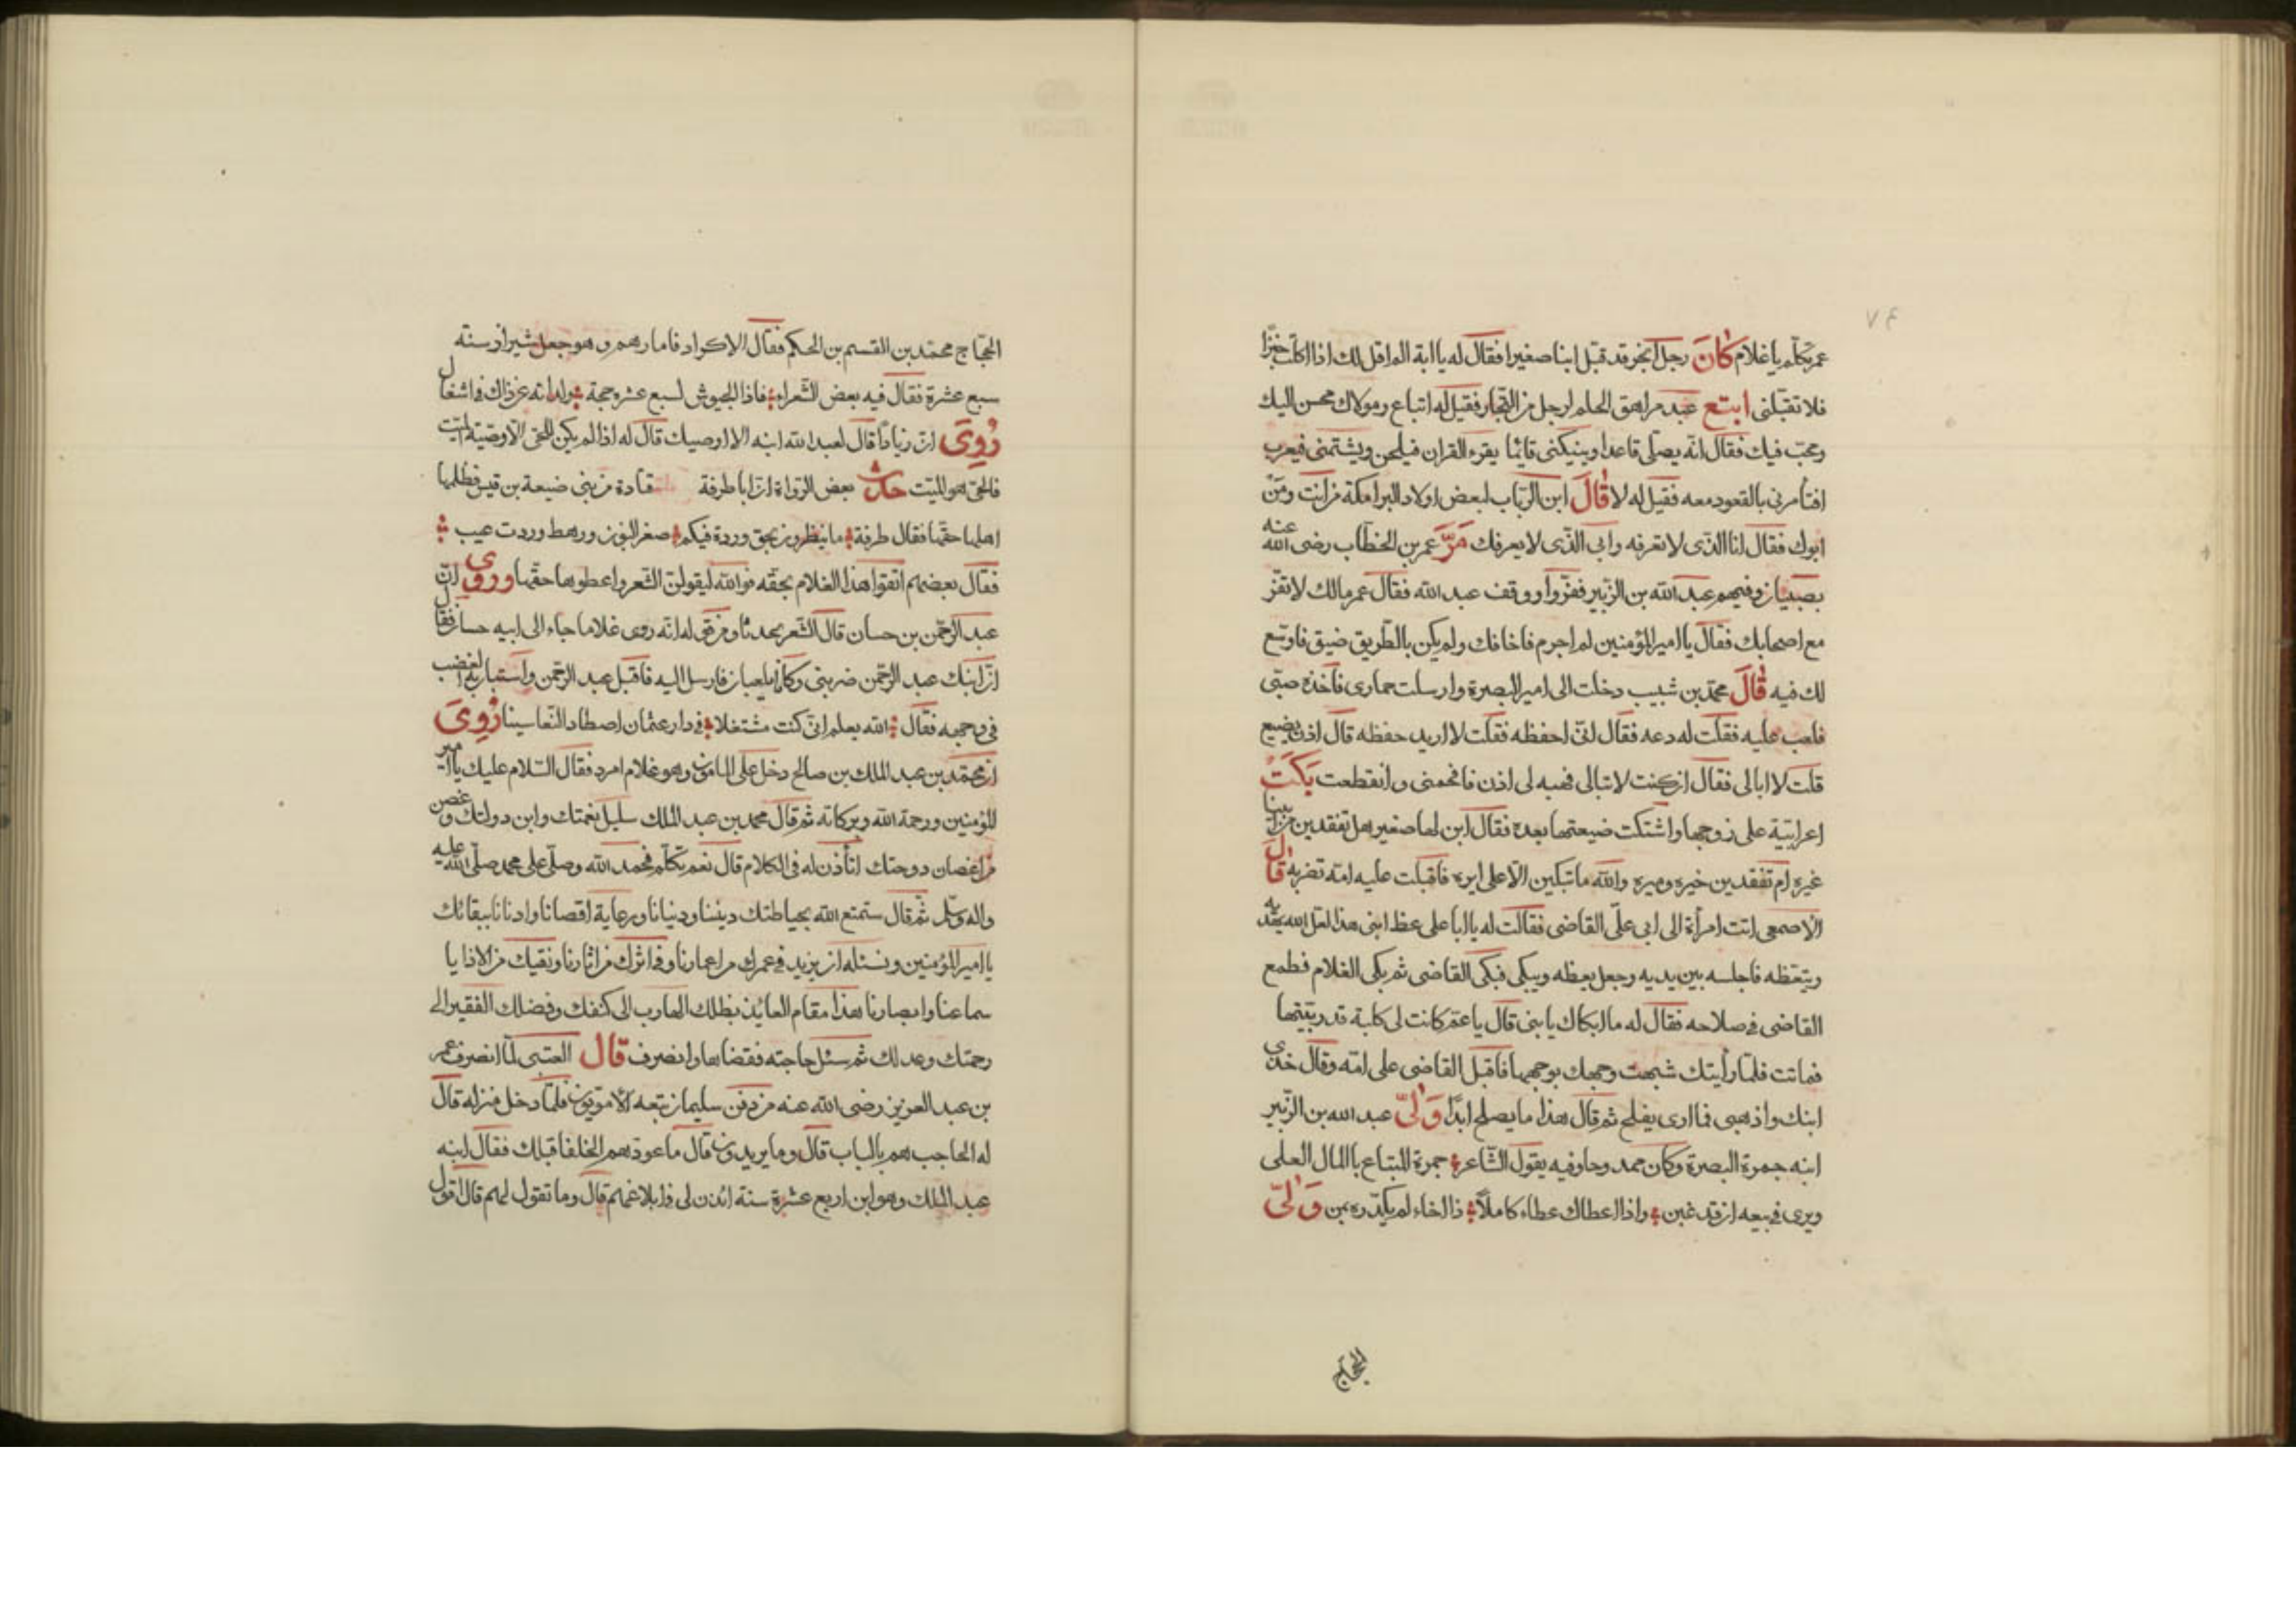 ٧٤
عمر تكلّم يا غلام كَانَ رجل ابخر قد قبّل ابنا صغيرا فقال له يا ابة الم اقل لك اذا اكلت خبزا
فلا تقبّلنى ابتع عبد مراهق الحلم لرجل من التجار فقيل له اتباع ومولاك محسن اليك
ومحبّ فيك فقال انّه يصلّى قاعدا وينيكنى قائما يقرء القران فيلحن ويشتمنى فيعرب
افتأمرنى بالقعود معه فقيل له لا قَالَ ابن الزيّاب لبعض اولاد البرامكة من انت ومَن
ابوك فقال انا الذّى لا تعرفه وابى الذّى لا يعرفك مَرَّ عمر بن الخطّاب رضى الله عنه
بصبيان وفيهم عبد الله بن الزّبير ففرّوا ووقف عبد الله فقال عمر مالك لا تفرّ
مع اصحابك فقال يا امير المؤمنين لم اجرم فاخافك ولم يكن بالطّريق ضيق فاوسّع
لك فيه قَالَ محمّد بن شبيب دخلت الى امير البصرة وارسلت حمارى فاخذه صبّى
فلعب عليه فقلت له دعه فقال انّى احفظه فقلت لا اريد حفظه قال اذن يضيع
قلت لا ابالى فقال ان كنت لا تبالى فهبه لى اذن فافحمنى وانقطعت بكَتْ
اعرابيّة على زوجها واشتكت ضيعتها بعده فقال ابن لها صغير هل تفقدين من ابينا
غيره ام تفقدين خيره وميره والله ما تبكين الّا على ايره فاقبلت عليه امّه تضربه قال
الاصمعى اتت امرأة الى ابى علّى القاضى فقالت له يا ابا على عظ ابنى هذا لعلّ الله يهديه
ويتعّظه فاجلسه بين يديه وجعل يعظه ويبكى فبكى القاضى ثم بكى الغلام فطمع
القاضى فى صلاحه فقال له ما ابكاك يا بنى قال يا عمّ كانت لى كلبة قد ربّيتها
فماتت فلمّا رأيتك شبهت وجهك بوجهها فاقبل القاضى على امّه وقال خذى
ابنك واذهبى فما ارى يفلح ثم قال هذا ما يصلح ابدًا وَلّى عبد الله بن الزّبير
ابنه حمزة البصرة وكان وفيه يقول الشّاعر حمزة المبتاع بالمال العلى
ويرى فى بيعه ان قد غبن واذا اعطاك عطاء كاملًا ذا اخاء لم يكدّره بمن وَلّى
الحجّاج
الحجّاج محمّد بن القسم بن الحكم فقال الاكراد وهو جعل شيراز سنّه
سبع عشرة فقال فيه بعض الشّعراء قاد الجيوش لسبع عشره حجة ولداته عن ذاك فى اشغال
رُوِىَ انّ زيادًا قال لعبد الله ابنه الا اوصيك قال له اذا لم يكن للحىّ الّا وصيّة الميّت
فالحى هو الميّت حدّث بعض الرّواة انّ ابا طرفة قتادة من بنى ضبيعة بن قيس فظلمها
اهلها حقّها فقال طرفة ما ينظرون بحق وردة فيكم صغر البنون ورهط وردت عيب
فقال بعضهم اتقوا هذا الغلام بحقّه فوالله ليقولنّ الشّعر واعطوها حقّها وروى انّ
عبد الرّحمن بن حسان قال الشّعر له انّه روى غلاما جاء الى ابيه حسان فقال
انّ ابنك عبد الرّحمن ضربنى وكانا يلعبان فارسل اليه فاقبل عبد الرّحمن واستبان الغضب
فى وجهه فقال الله يعلم انّى كنت مشتغلا فى دار عثمان اصطاد النّعاسينا رُوِىَ
ان محمّد بن عبد الملك بن صالح دخل على المامون وهو غلام امرد فقال السّلام عليك يا امير
المؤمنين ورحمة الله وبركاته ثم قال محمد بن عبد الملك سليل نعمتك وابن دولتك وغصن
من اغصان دوحتك اتأذن له فى الكلام قال نعم تكلّم فحمد الله وصلّى على محمد صلّى الله عليه
واله وسلّم ثم قال ستمتع الله بحياطتك ديننا ودنيانا ورعاية اقصانا وادنانا ببقائك
يا امير المؤمنين ونسئله ان يزيد فى عمرك من اعمارنا وفى اثرك من اثارنا ونقيك من الاذا يا
سماعنا وابصارنا هذا مقام العايذ بظلك الهارب الى كنفك وفضلك الفقير الى
رحمتك وعدلك ثم سئل حاجته فقضاها وانصرف قال العتبى لمّا انصرف عمر
بن عبد العزيز رضى الله عنه من دفن سليمان تبعه الامويّون فلمّا دخل منزله قال
له الحاجب هم بالباب قال وما يريدون قال ما عودهم الخلفا قبلك فقال ابنه
عبد الملك وهو ابن اربع عشرة سنة ائذن لى فى ابلاغهم قال وما تقول لهم قال اقول